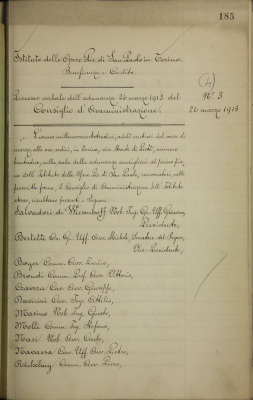 185
Istituto delle Opere Pie di San Paolo in Torino.
Beneficenza e Credito.
Processo verbale dell'adunanza 20 marzo 1913 del
Consiglio d'Amministrazione.
(4)
N.° 3
20 marzo 1913
L'anno millenovecentotredici, addì venti del mese di
marzo, alle ore sedici, in Torino, via Monte di Pietà, numero
trentadue, nella sala delle adunanze consigliari al primo pia-
no dell'Istituto delle Opere Pie di San Paolo, convocatosi, nelle
prescritte forme, il Consiglio di Amministrazione dell'Istituto
stesso, risultano presenti i Signori:
Salvadori di Wiesenhoff Nob. Ing. Gr. Uff. Giacomo,
Presidente,
Bertetti Gr. Uff. Avv. Michele, Senatore del Regno,
Vice-Presidente,
Boyer Comm. Avv. Enrico,
Brondi Comm. Prof. Avv. Vittorio,
Cravera Cav. Avv. Giuseppe,
Daviso Cav. Ing. Attilio,
Masino Nob. Ing. Guido,
Molli Comm. Ing. Stefano,
Nasi Nob. Avv. Carlo,
Navassa Cav. Uff. Avv. Pietro,
Comm. Avv.